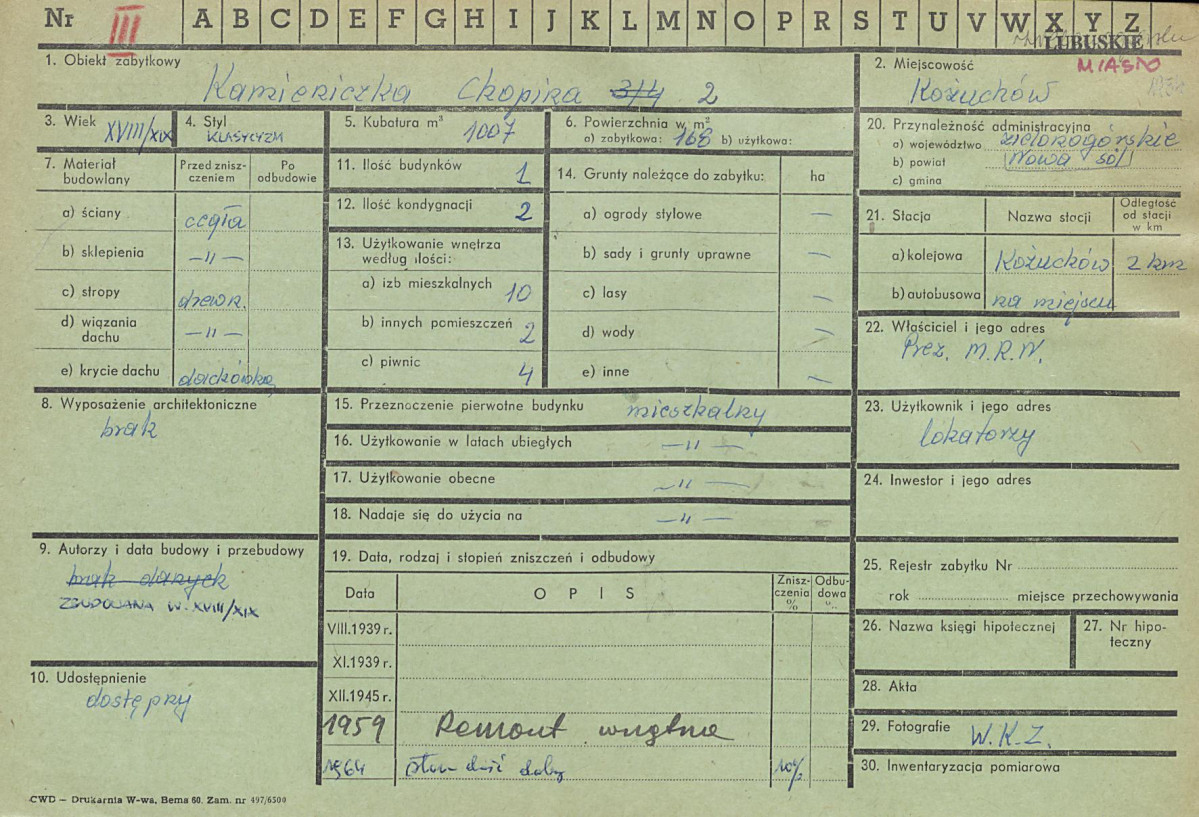 Nr III A B C D E F G H I J K L M N O P R S T U V W X Y Z
LUBUSKIE
1. Obiekt zabytkowy
Kamieniczka Chopina 3/4 2
2. Miejscowość
MIASTO
Kożuchów
3. Wiek XVIII/XIX
4. Styl KLASYCYZM
5. Kubatura m³ 1007
6. Powierzchnia w m²
a) zabytkowa: 168 b) użytkowa:
20. Przynależność administracyjna
a) województwo zielonogórskie
b) powiat Nowa Sól
c) gmina
7. Materiał budowlany
Przed zniszczeniem
Po odbudowie
a) ściany cegła
b) sklepienia —"—
c) stropy drewn.
d) wiązania dachu —"—
e) krycie dachu dachówka
11. Ilość budynków 1
12. Ilość kondygnacji 2
13. Użytkowanie wnętrza według ilości:
a) izb mieszkalnych 10
b) innych pomieszczeń 2
c) piwnic 4
14. Grunty należące do zabytku: ha
a) ogrody stylowe —
b) sady i grunty uprawne —
c) lasy —
d) wody —
e) inne —
21. Stacja
Nazwa stacji
Odległość od stacji w km
a) kolejowa Kożuchów 2 km
b) autobusowa na miejscu
22. Właściciel i jego adres
Prez. M.R.N.
8. Wyposażenie architektoniczne
brak
15. Przeznaczenie pierwotne budynku mieszkalny
16. Użytkowanie w latach ubiegłych —"—
17. Użytkowanie obecne —"—
18. Nadaje się do użycia na —"—
23. Użytkownik i jego adres
lokatorzy
24. Inwestor i jego adres
9. Autorzy i data budowy i przebudowy
brak danych
ZBUDOWANA W. XVIII/XIX
19. Data, rodzaj i stopień zniszczeń i odbudowy
Data
OPIS
Zniszczenia %
Odbudowa
VIII.1939 r.
XI.1939 r.
XII.1945 r.
1959 Remont wnętrza
1964 stan dość dobry 10%
25. Rejestr zabytku Nr
rok miejsce przechowywania
26. Nazwa księgi hipotecznej
27. Nr hipoteczny
10. Udostępnienie
dostępny
28. Akta
29. Fotografie W.K.Z.
30. Inwentaryzacja pomiarowa
CWD — Drukarnia W-wa, Bema 60. Zam. nr 497/6500